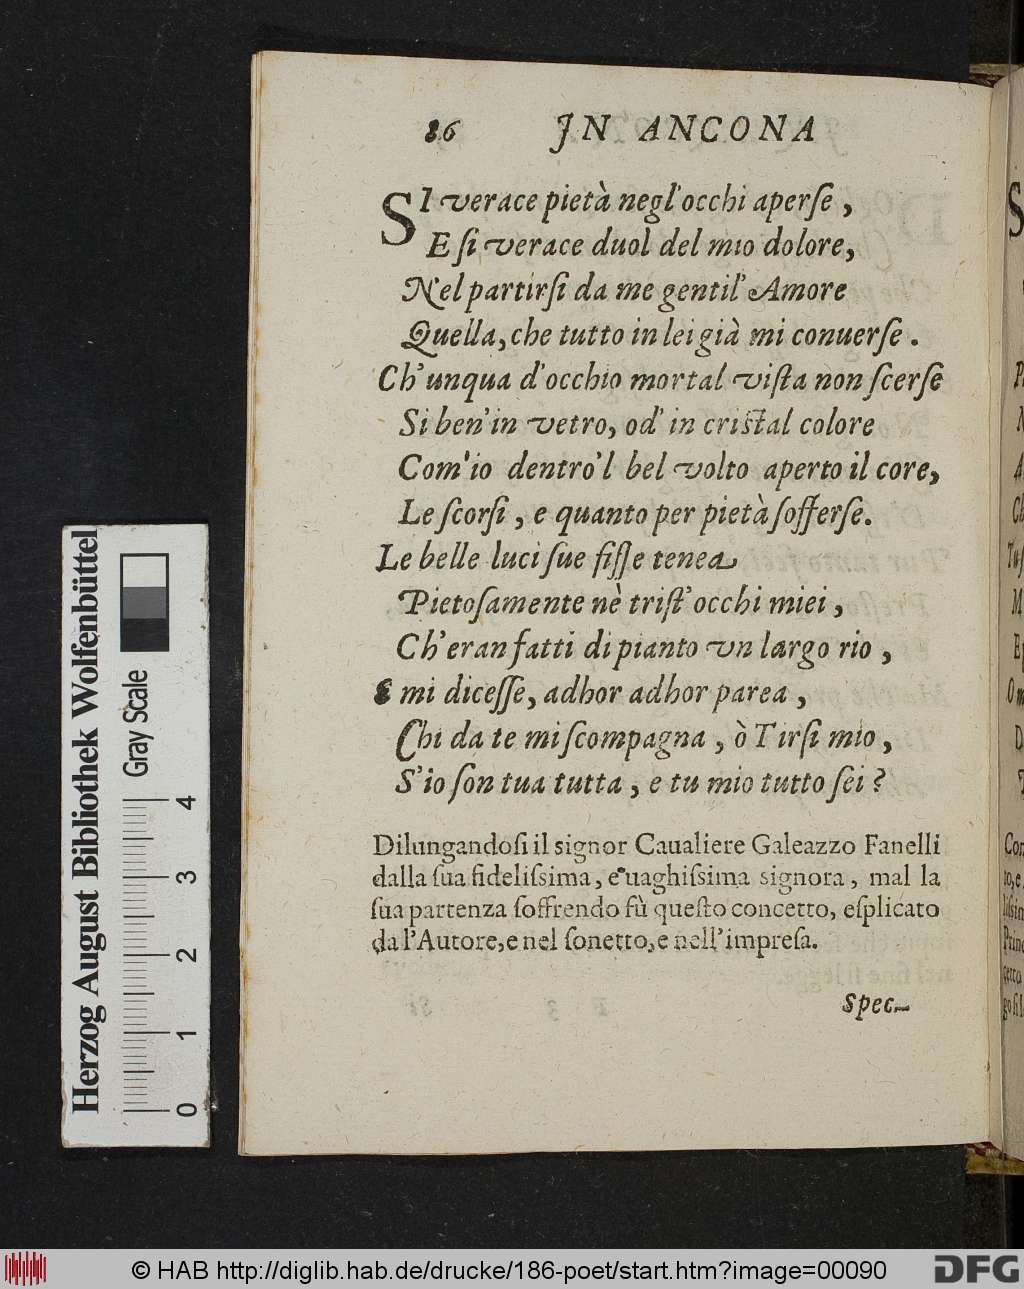 86 IN ANCONA
SI verace pietà negl'occhi aperse,
E si verace duol del mio dolore,
Nel partirsi da me gentil' Amore
Quella, che tutto in lei già mi conuerse.
Ch'unqua d'occhio mortal vista non scerse
Si ben' in vetro, od' in cristal colore
Com'io dentro'l bel volto aperto il core,
Le scorsi, e quanto per pietà sofferse.
Le belle luci sue fisse tenea
Pietosamente nè trist' occhi miei,
Ch'eran fatti di pianto vn largo rio,
E mi dicesse, adhor adhor parea,
Chi da te mi scompagna, ò Tirsi mio,
S'io son tua tutta, e tu mio tutto sei?
Dilungandosi il signor Caualiere Galeazzo Fanelli
dalla sua fidelissima, e uaghissima signora, mal la
sua partenza soffrendo fù questo concetto, esplicato
da l'Autore, e nel sonetto, e nell'impresa.
Spec-
Herzog August Bibliothek Wolfenbüttel
Gray Scale
0 1 2 3 4
© HAB http://diglib.hab.de/drucke/186-poet/start.htm?image=00090
DFG